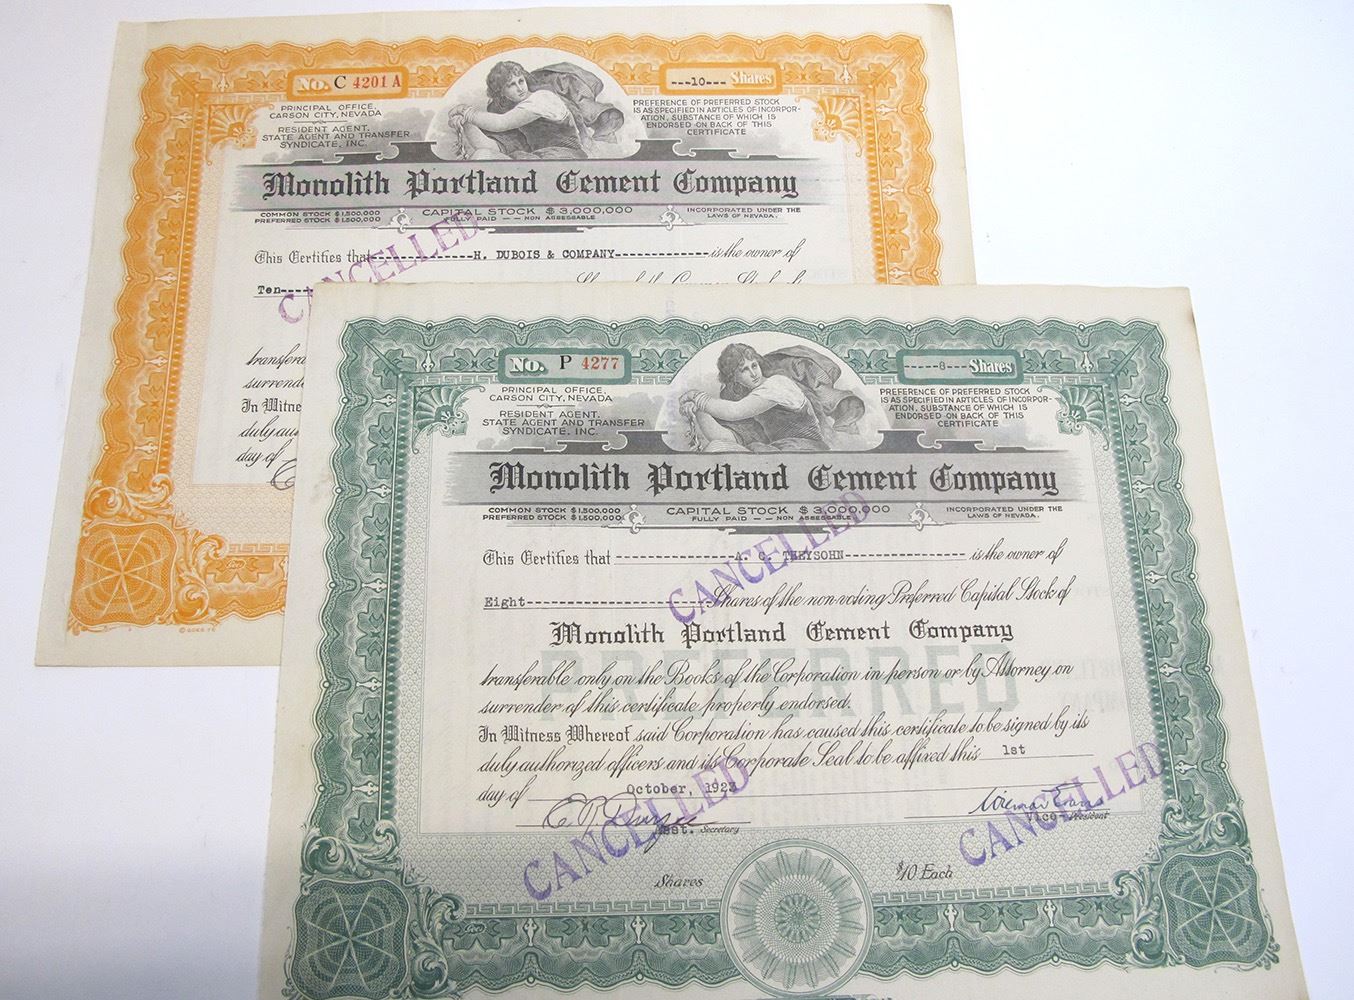 No. C 4201 A
---10--- Shares
PRINCIPAL OFFICE,
CARSON CITY, NEVADA
RESIDENT AGENT,
STATE AGENT AND TRANSFER
SYNDICATE, INC.
PREFERENCE OF PREFERRED STOCK
IS AS SPECIFIED IN ARTICLES OF INCORPOR-
ATION, SUBSTANCE OF WHICH IS
ENDORSED ON BACK OF THIS
CERTIFICATE
Monolith Portland Cement Company
COMMON STOCK $1,500,000
PREFERRED STOCK $1,500,000
CAPITAL STOCK $3,000,000
FULLY PAID -- NON ASSESSABLE
INCORPORATED UNDER THE
LAWS OF NEVADA.
This Certifies that H. DUBOIS & COMPANY is the owner of
Ten
CANCELLED
transfera
surrende
In Witne
duly au
day of
No. P 4277
-----8--- Shares
PRINCIPAL OFFICE
CARSON CITY, NEVADA
RESIDENT AGENT,
STATE AGENT AND TRANSFER
SYNDICATE, INC.
PREFERENCE OF PREFERRED STOCK
IS AS SPECIFIED IN ARTICLES OF INCORPOR-
ATION, SUBSTANCE OF WHICH IS
ENDORSED ON BACK OF THIS
CERTIFICATE
Monolith Portland Cement Company
COMMON STOCK $1,500,000
PREFERRED STOCK $1,500,000
CAPITAL STOCK $3,000,000
FULLY PAID -- NON ASSESSABLE
INCORPORATED UNDER THE
LAWS OF NEVADA.
This Certifies that A. C. is the owner of
CANCELLED
Eight Shares of the non-voting Preferred Capital Stock of
Monolith Portland Cement Company
PREFERRED
transferable only on the Books of the Corporation in person or by Attorney on
surrender of this certificate properly endorsed.
In Witness Whereof said Corporation has caused this certificate to be signed by its
duly authorized officers and its Corporate Seal to be affixed this 1st
day of October, 1923
Asst. Secretary
Vice-President
CANCELLED
CANCELLED
Shares
$10 Each